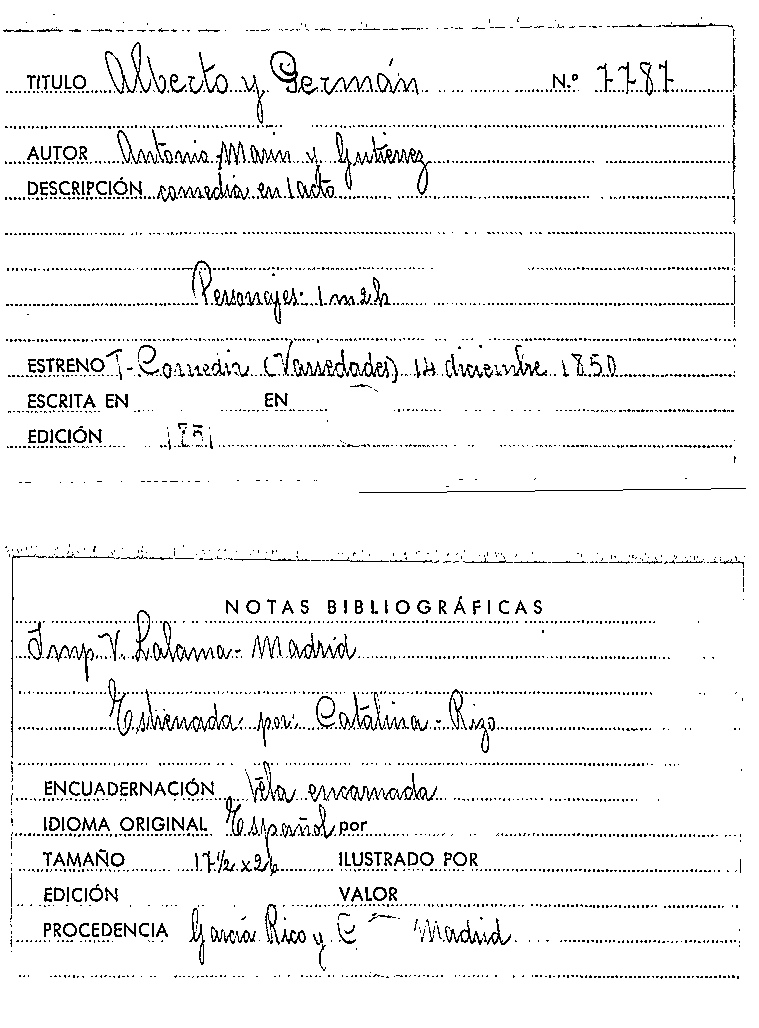 TITULO Alberto y Germán N.º 7787
AUTOR Antonio Marin y Gutiérrez
DESCRIPCIÓN comedia en 1 acto
Personajes: 1 m 2 h
ESTRENO T- Comedia (Variedades) 14 diciembre 1850
ESCRITA EN EN
EDICIÓN 1851
NOTAS BIBLIOGRÁFICAS
Imp. V. Lalama - Madrid
Estrenada por: Catalina - Rizo
ENCUADERNACIÓN Tela encarnada
IDIOMA ORIGINAL Español por
TAMAÑO 17½ x 26 ILUSTRADO POR
EDICIÓN VALOR
PROCEDENCIA García Rico y Cª Madrid